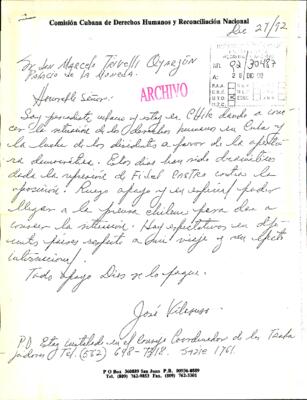 Comisión Cubana de Derechos Humanos y Reconciliación Nacional
Dic 27/92
Sr. Don Marcelo Trivelli Oyarzún
Palacio de la Moneda.
92/30487
A: 28 DIC 92
Honorable Señor:
ARCHIVO
Soy periodista cubano y estoy en Chile dando a cono
cer la situación de los derechos humanos en Cuba y
la lucha de los disidentes a favor de la apertura
democrática. Estos días han sido dramáticos
dada la represión de Fidel Castro contra la
oposición. Ruego apoyo y en especial poder
llegar a la prensa chilena para dar a
conocer la situación. Hay expectativas en dife
rentes países respecto a mi viaje y su efecto
internacional.
Todo apoyo Dios se lo pague.
José
P.D. Estoy instalado en el Consejo Coordinador de los Traba
jadores / Tel. (562) 698-7318.
P O Box 360889 San Juan P.R. 00936-0889
Tel. (809) 762-9853 Fax. (809) 762-3301